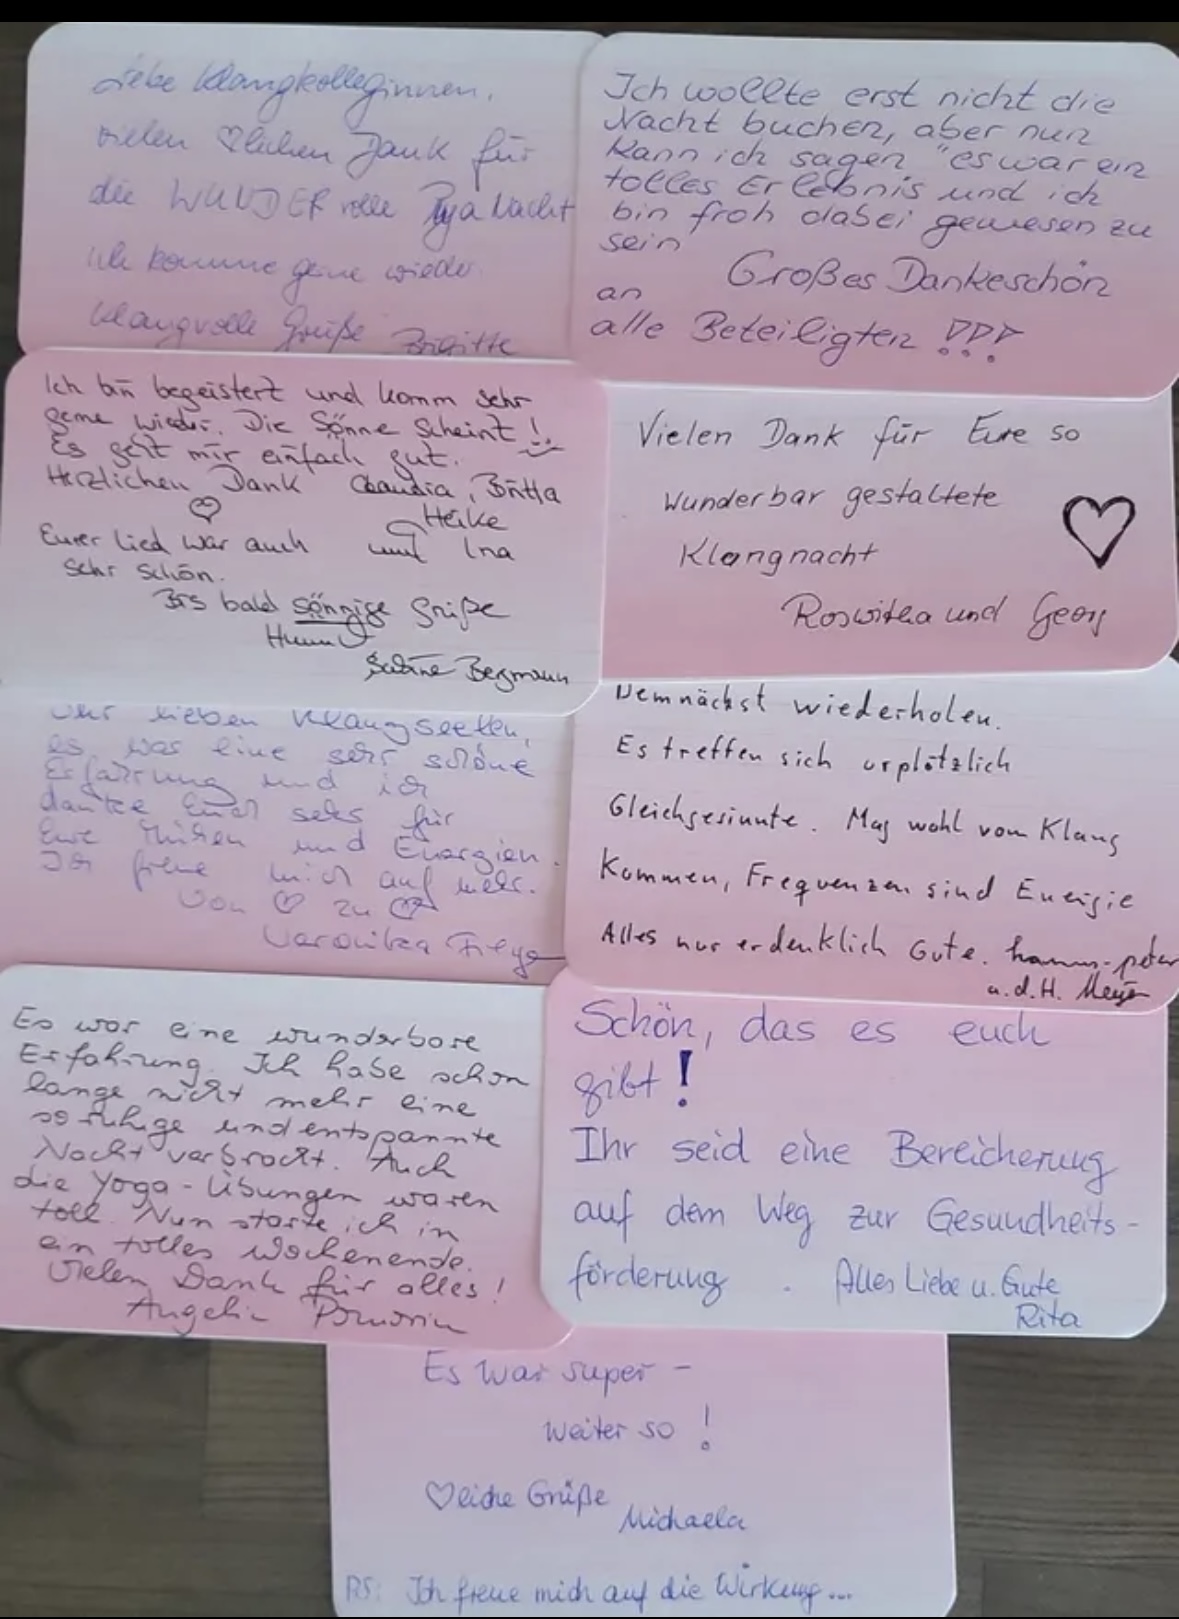 Liebe Klangkolleginnen,
vielen ♡lichen Dank für
die WUNDERvolle Nacht
ich komme gerne wieder.
Klangvolle Grüße Brigitte
Ich wollte erst nicht die
Nacht buchen, aber nun
kann ich sagen "es war ein
tolles Erlebnis und ich
bin froh dabei gewesen zu
sein
Großes Dankeschön
an
alle Beteiligten !!!
Ich bin begeistert und komm sehr
gerne wieder. Die Sönne Scheint!
Es geht mir einfach gut.
Herzlichen Dank Claudia, Britta
♡ Heike
Eurer Lied war auch und Ina
sehr schön.
Bis bald sönnige Grüße
Sabine Bergmann
Vielen Dank für Eure so
wunderbar gestaltete
Klangnacht ♡
Roswitha und Georg
Ihr lieben Klangseelen,
es was eine sehr schöne
Erfahrung und ich
danke Euch sehr für
Eure Mühen und Energien.
Ich freue mich auf mehr.
Von ♡ zu ♡
Veronika
Demnächst wiederholen.
Es treffen sich urplötzlich
Gleichgesinnte. Mag wohl vom Klang
Kommen, Frequenzen sind Energie
Alles nur erdenklich Gute. hanns-peter
a.d.H. Meyer
Es war eine wunderbare
Erfahrung. Ich habe schon
lange nicht mehr eine
so ruhige und entspannte
Nacht verbracht. Auch
die Yoga-Übungen waren
toll. Nun starte ich in
ein tolles Wochenende.
Vielen Dank für alles!
Schön, das es euch
gibt!
Ihr seid eine Bereicherung
auf dem Weg zur Gesundheits-
förderung. Alles Liebe u. Gute
Rita
Es war super -
weiter so!
♡liche Grüße
Michaela
PS: Ich freue mich auf die Wirkung...